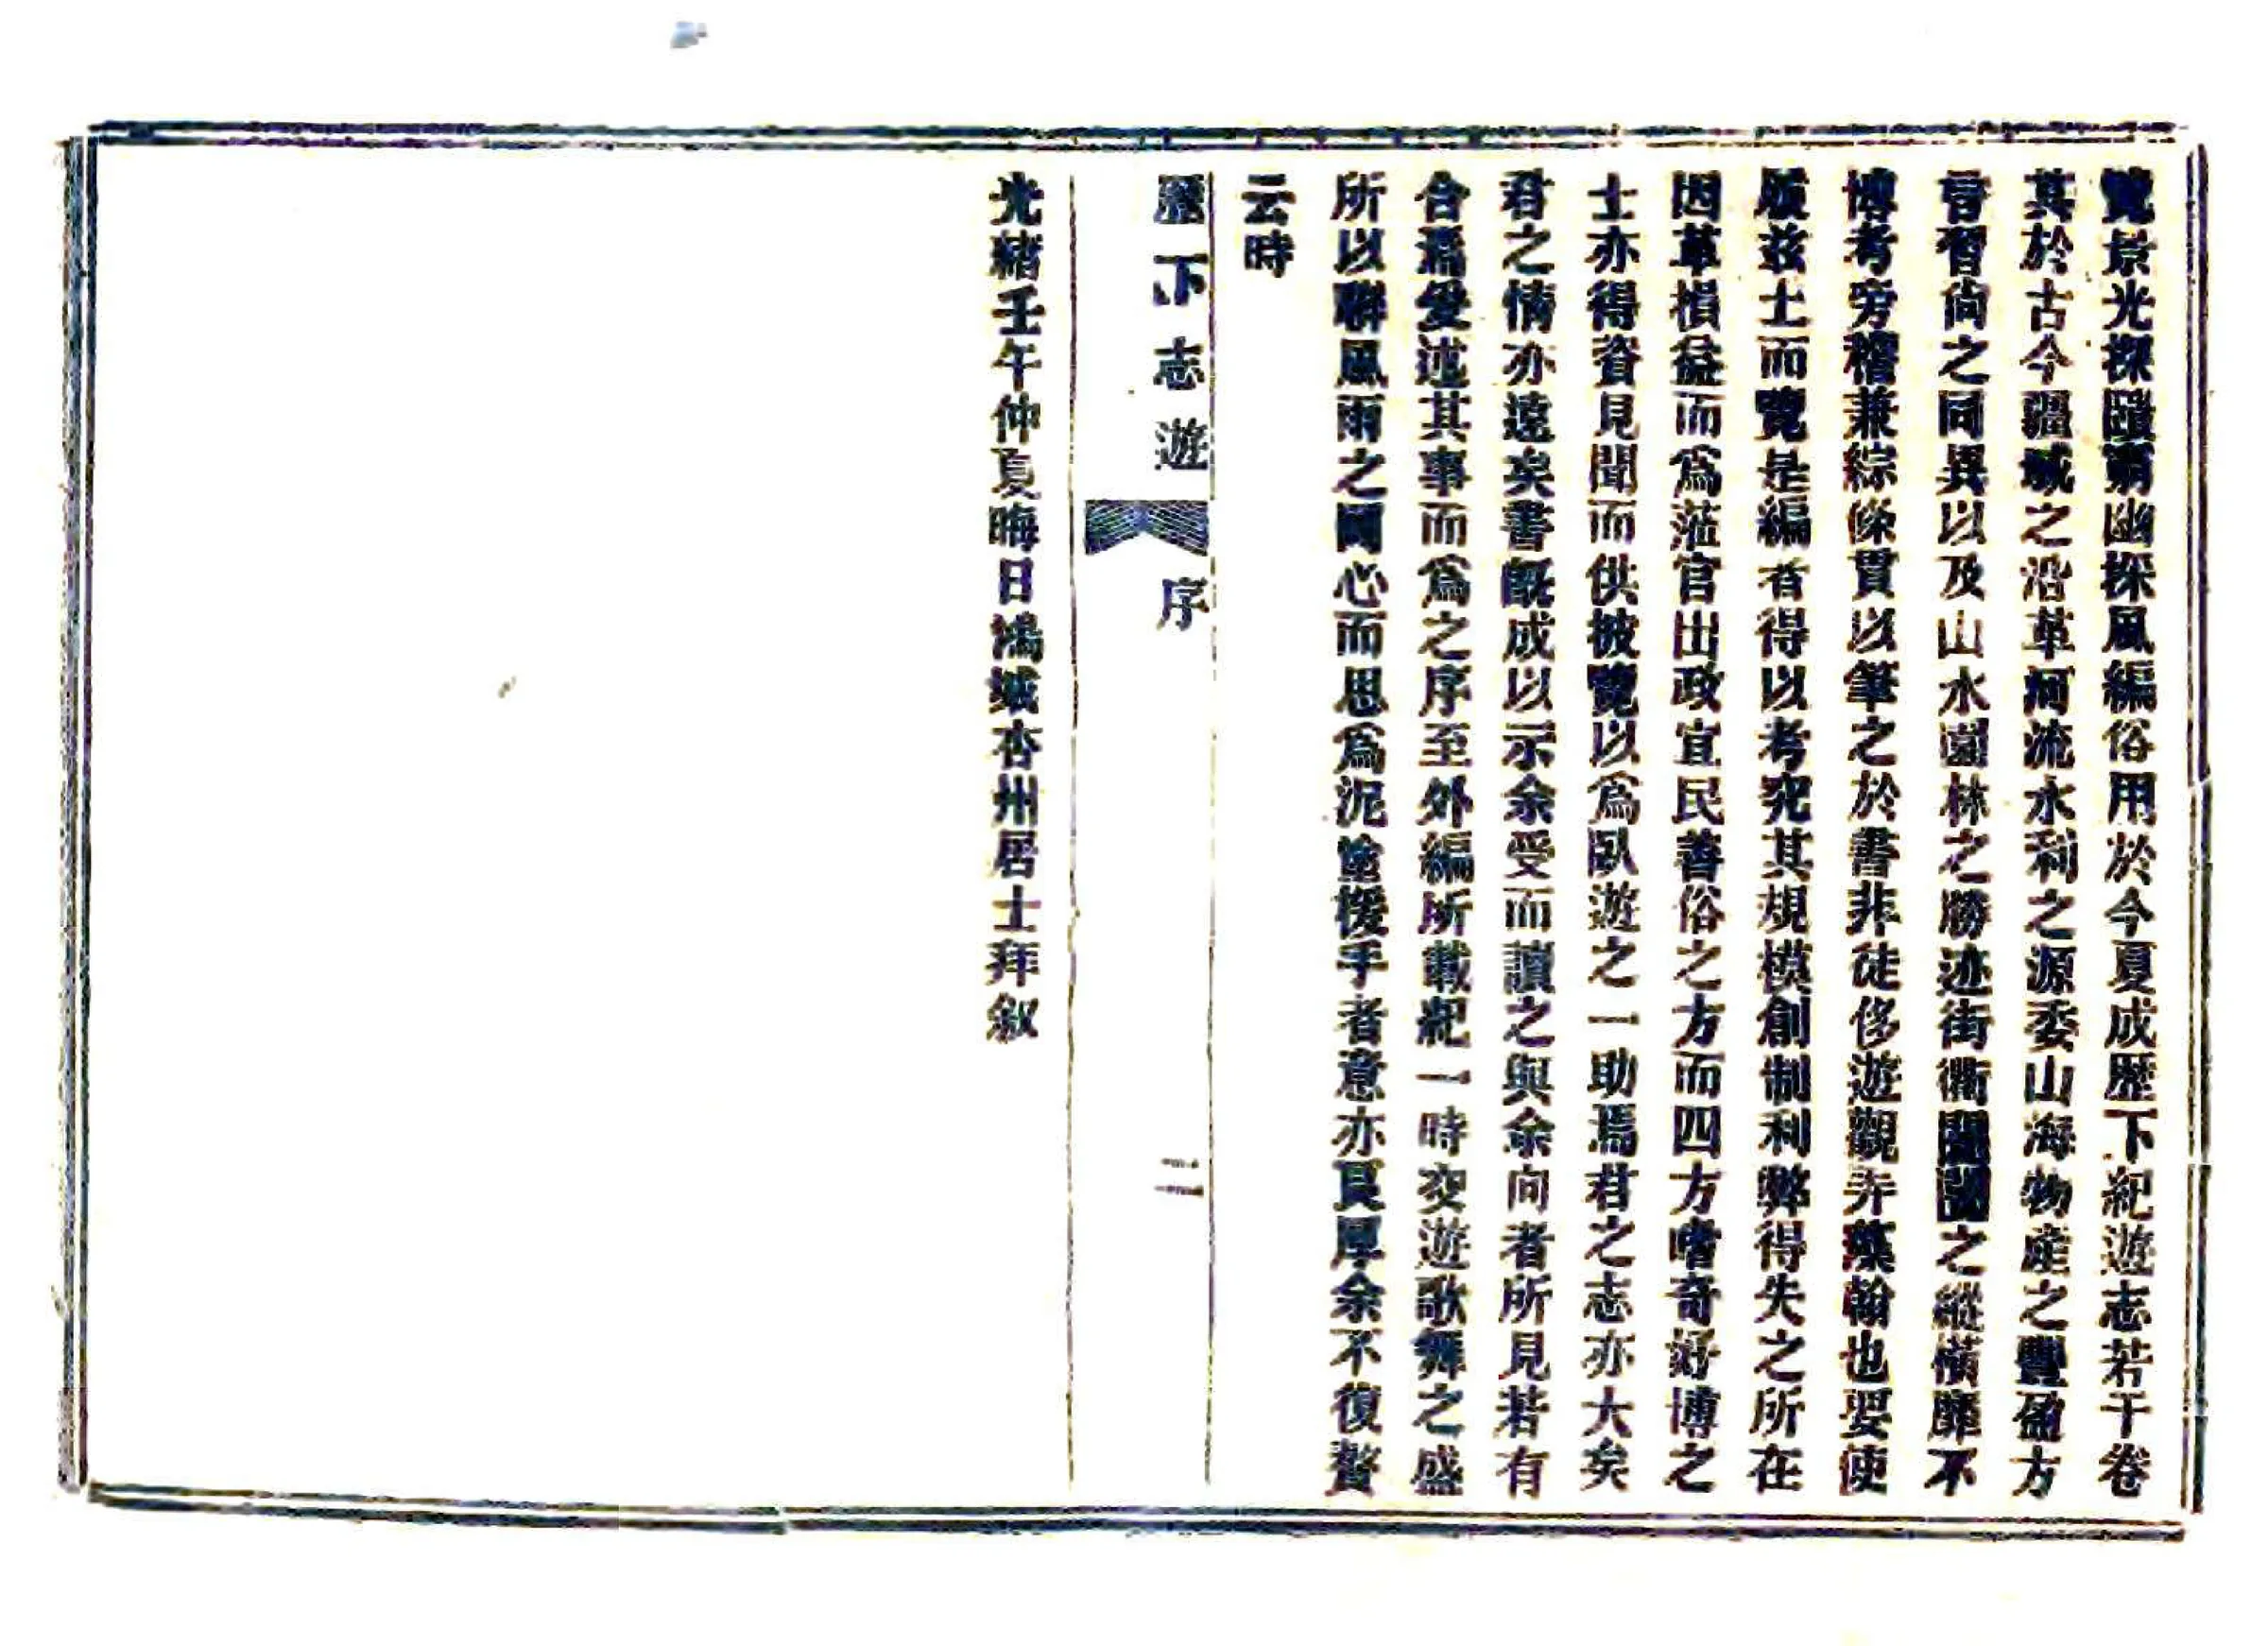 覽景光探賾窮幽採風編俗用於今夏成歷下紀遊志若干卷
其於古今疆域之沿革河流水利之源委山海物產之豐盈方
言習尙之同異以及山水園林之勝迹街衢閭閻之縱橫靡不
博考旁稽兼綜條貫以筆之於書非徒侈遊觀弄藻翰也要使
履茲土而覽是編者得以考究其規模創制利弊得失之所在
因革損益而爲蒞官出政宜民善俗之方而四方嗜奇好博之
士亦得資見聞而供披覽以爲臥遊之一助焉君之志亦大矣
君之情亦遠矣書旣成以示余受而讀之與余向者所見若有
合焉爰述其事而爲之序至外編所載紀一時交遊歌舞之盛
所以聯風雨之同心而思爲泥塗援手者意亦良厚余不復贅
云時
歷下志遊
序
二
光緒壬午仲夏晦日鴻城杏州居士拜叙